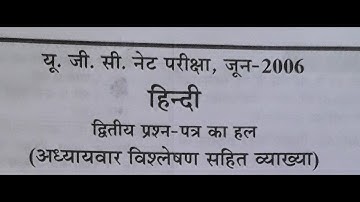 यू. जी. सी. नेट परीक्षा, जून-2006
हिन्दी
द्वितीय प्रश्न-पत्र का हल
(अध्यायवार विश्लेषण सहित व्याख्या)